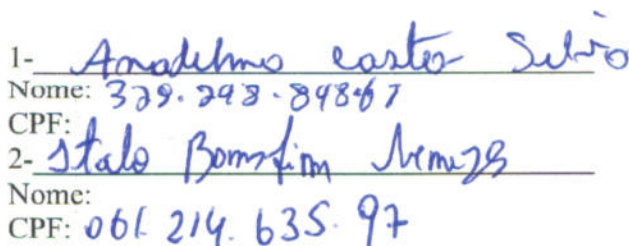 1- Anadelmo Castro Silvio
Nome: 329.298.898-67
CPF:
2- Italo Bomfim
Nome:
CPF: 061.214.635.97